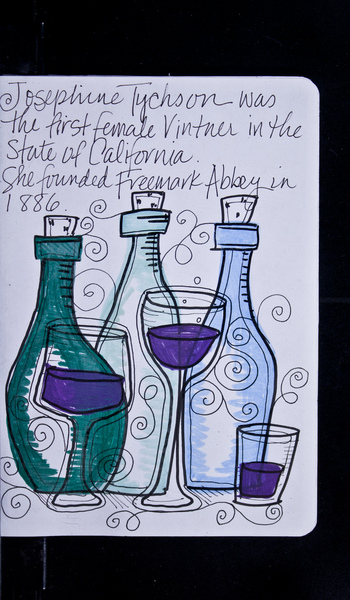 Josephine Tychson was
the first female Vintner in the
State of California.
She founded Freemark Abbey in
1886.